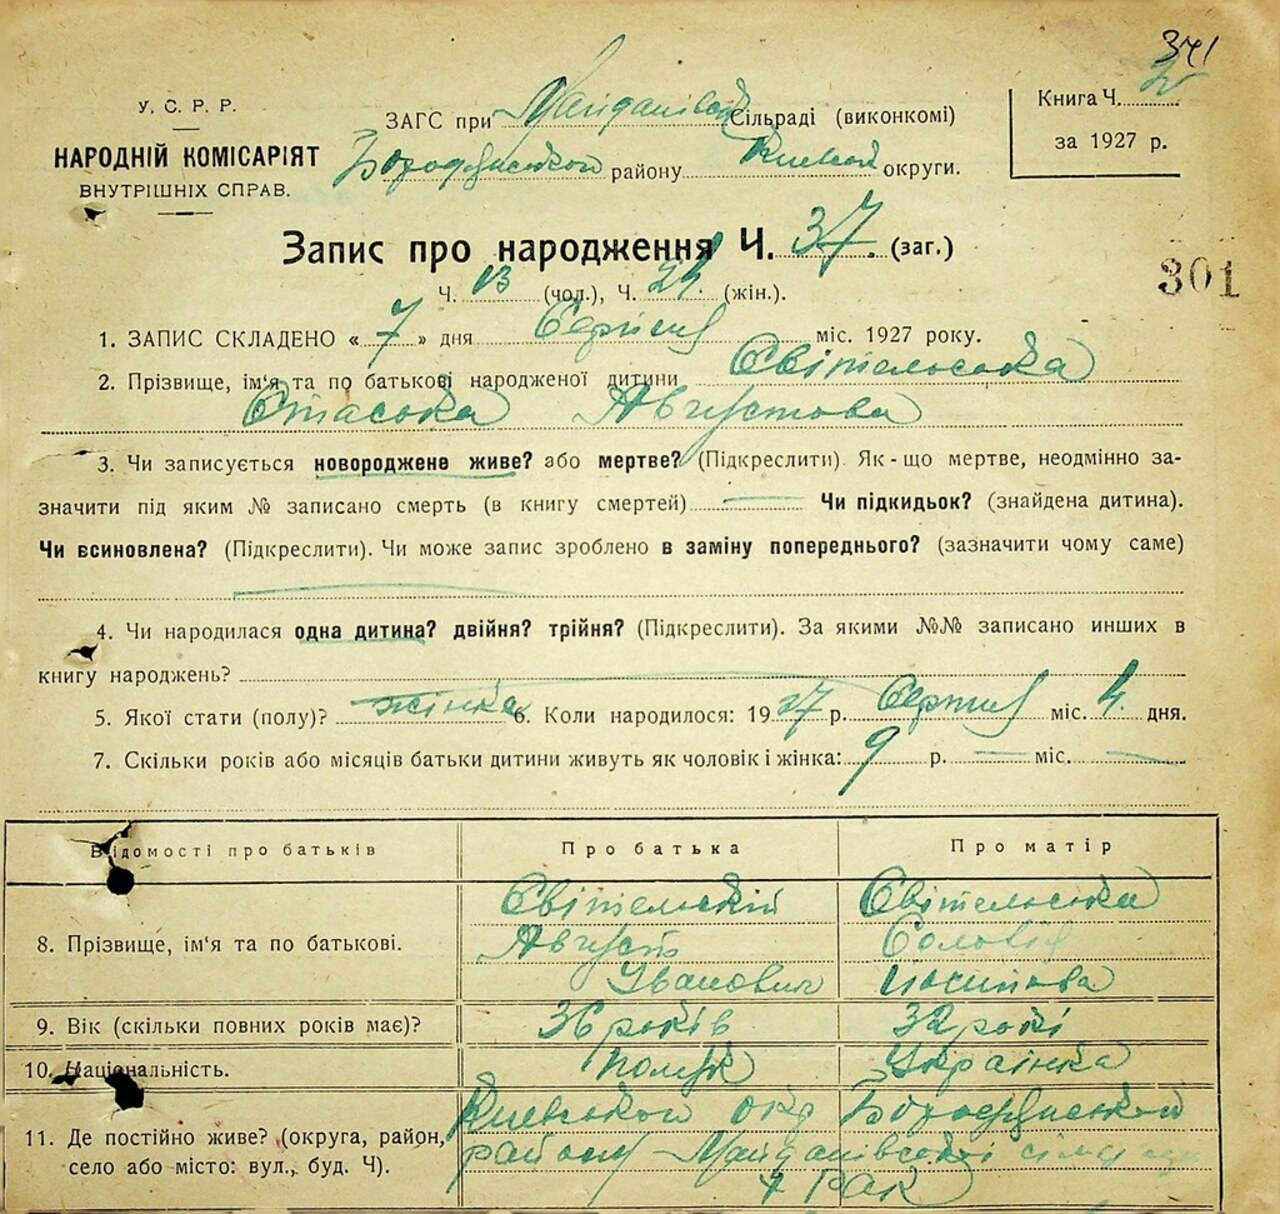 341
У. С. Р. Р.
НАРОДНІЙ КОМІСАРІЯТ
ВНУТРІШНІХ СПРАВ.
ЗАГС при Майданівській Сільраді (виконкомі)
району Київської округи.
Книга Ч. 2
за 1927 р.
Запис про народження Ч. 37. (заг.)
Ч. 13 (чол.), Ч. 24. (жін.).
301
1. ЗАПИС СКЛАДЕНО « 7 » дня Серпня міс. 1927 року.
2. Прізвище, ім'я та по батькові народженої дитини Світельська
Стаська Августова
3. Чи записується новороджене живе? або мертве? (Підкреслити). Як-що мертве, неодмінно за-
значити під яким № записано смерть (в книгу смертей) Чи підкидьок? (знайдена дитина).
Чи всиновлена? (Підкреслити). Чи може запис зроблено в заміну попереднього? (зазначити чому саме)
4. Чи народилася одна дитина? двійня? трійня? (Підкреслити). За якими №№ записано инших в
книгу народжень?
5. Якої стати (полу)? жінка 6. Коли народилося: 1927 р. Серпня міс. 4. дня.
7. Скільки років або місяців батьки дитини живуть як чоловік і жінка: 9 р. — міс. —
Відомості про батьків Про батька Про матір
8. Прізвище, ім'я та по батькові.
Світельский Світельська
Август
Іванович
9. Вік (скільки повних років має)? 36 років 32 роки
10. Національність. Поляк Українка
11. Де постійно живе? (округа, район,
село або місто: вул., буд. Ч).
району Майданівської